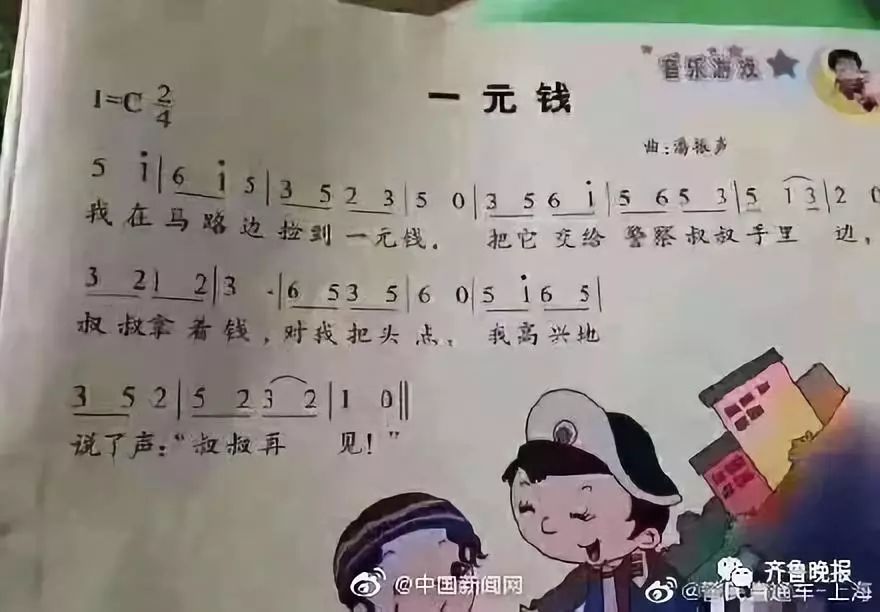 音乐游戏
1=C 2/4
一元钱
曲:潘振声
5 i|6 i 5|3 5 2 3|5 0|3 5 6 i|5 6 5 3|5 1 3|2 0
我在马路边捡到一元钱。 把它交给警察叔叔手里 边,
3 2 1 2|3 ·|6 5 3 5|6 0|5 i 6 5|
叔叔拿着钱,对我把头点。 我高兴地
3 5 2|5 2 3 2|1 0||
说了声:“叔叔再 见!”
齐鲁晚报
@中国新闻网
@警民直通车-上海